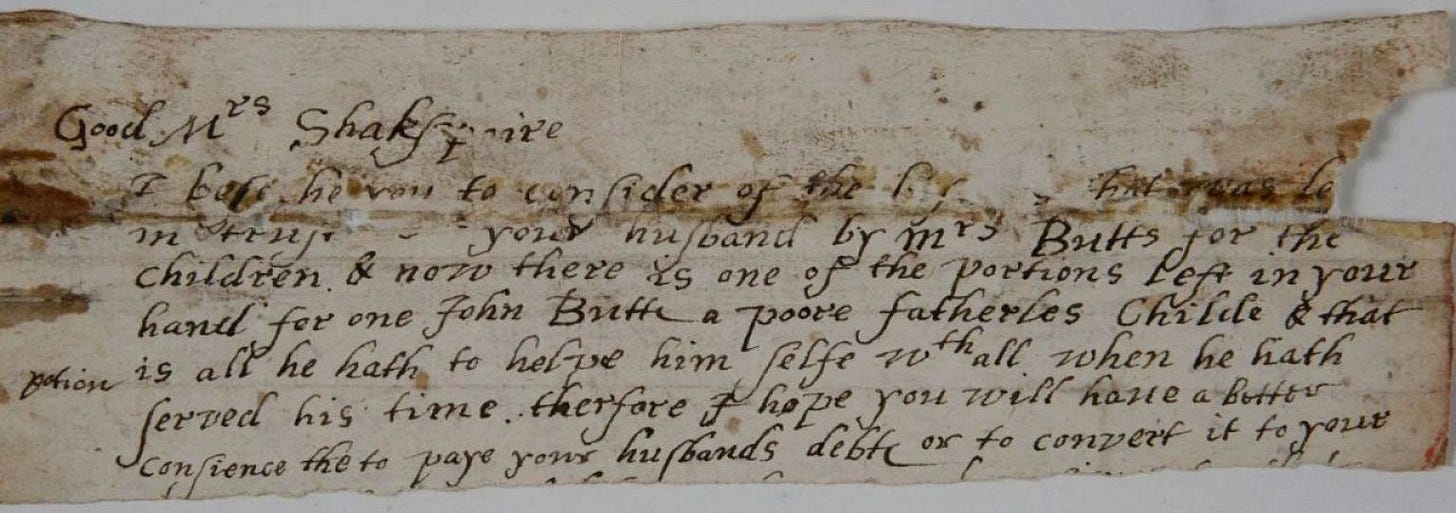 Good Mrs Shaksp ire
I bese he you to consider of the hat was le
in trust your husband by Mrs Butts for the
Children. & now there is one of the portions left in your
hand for one John Butte a poore fatherles Childe & that
potion is all he hath to helpe him selfe wth all when he hath
served his time. therfore I hope you will haue a better
Consience the to paye your husbands debte or to convert it to your